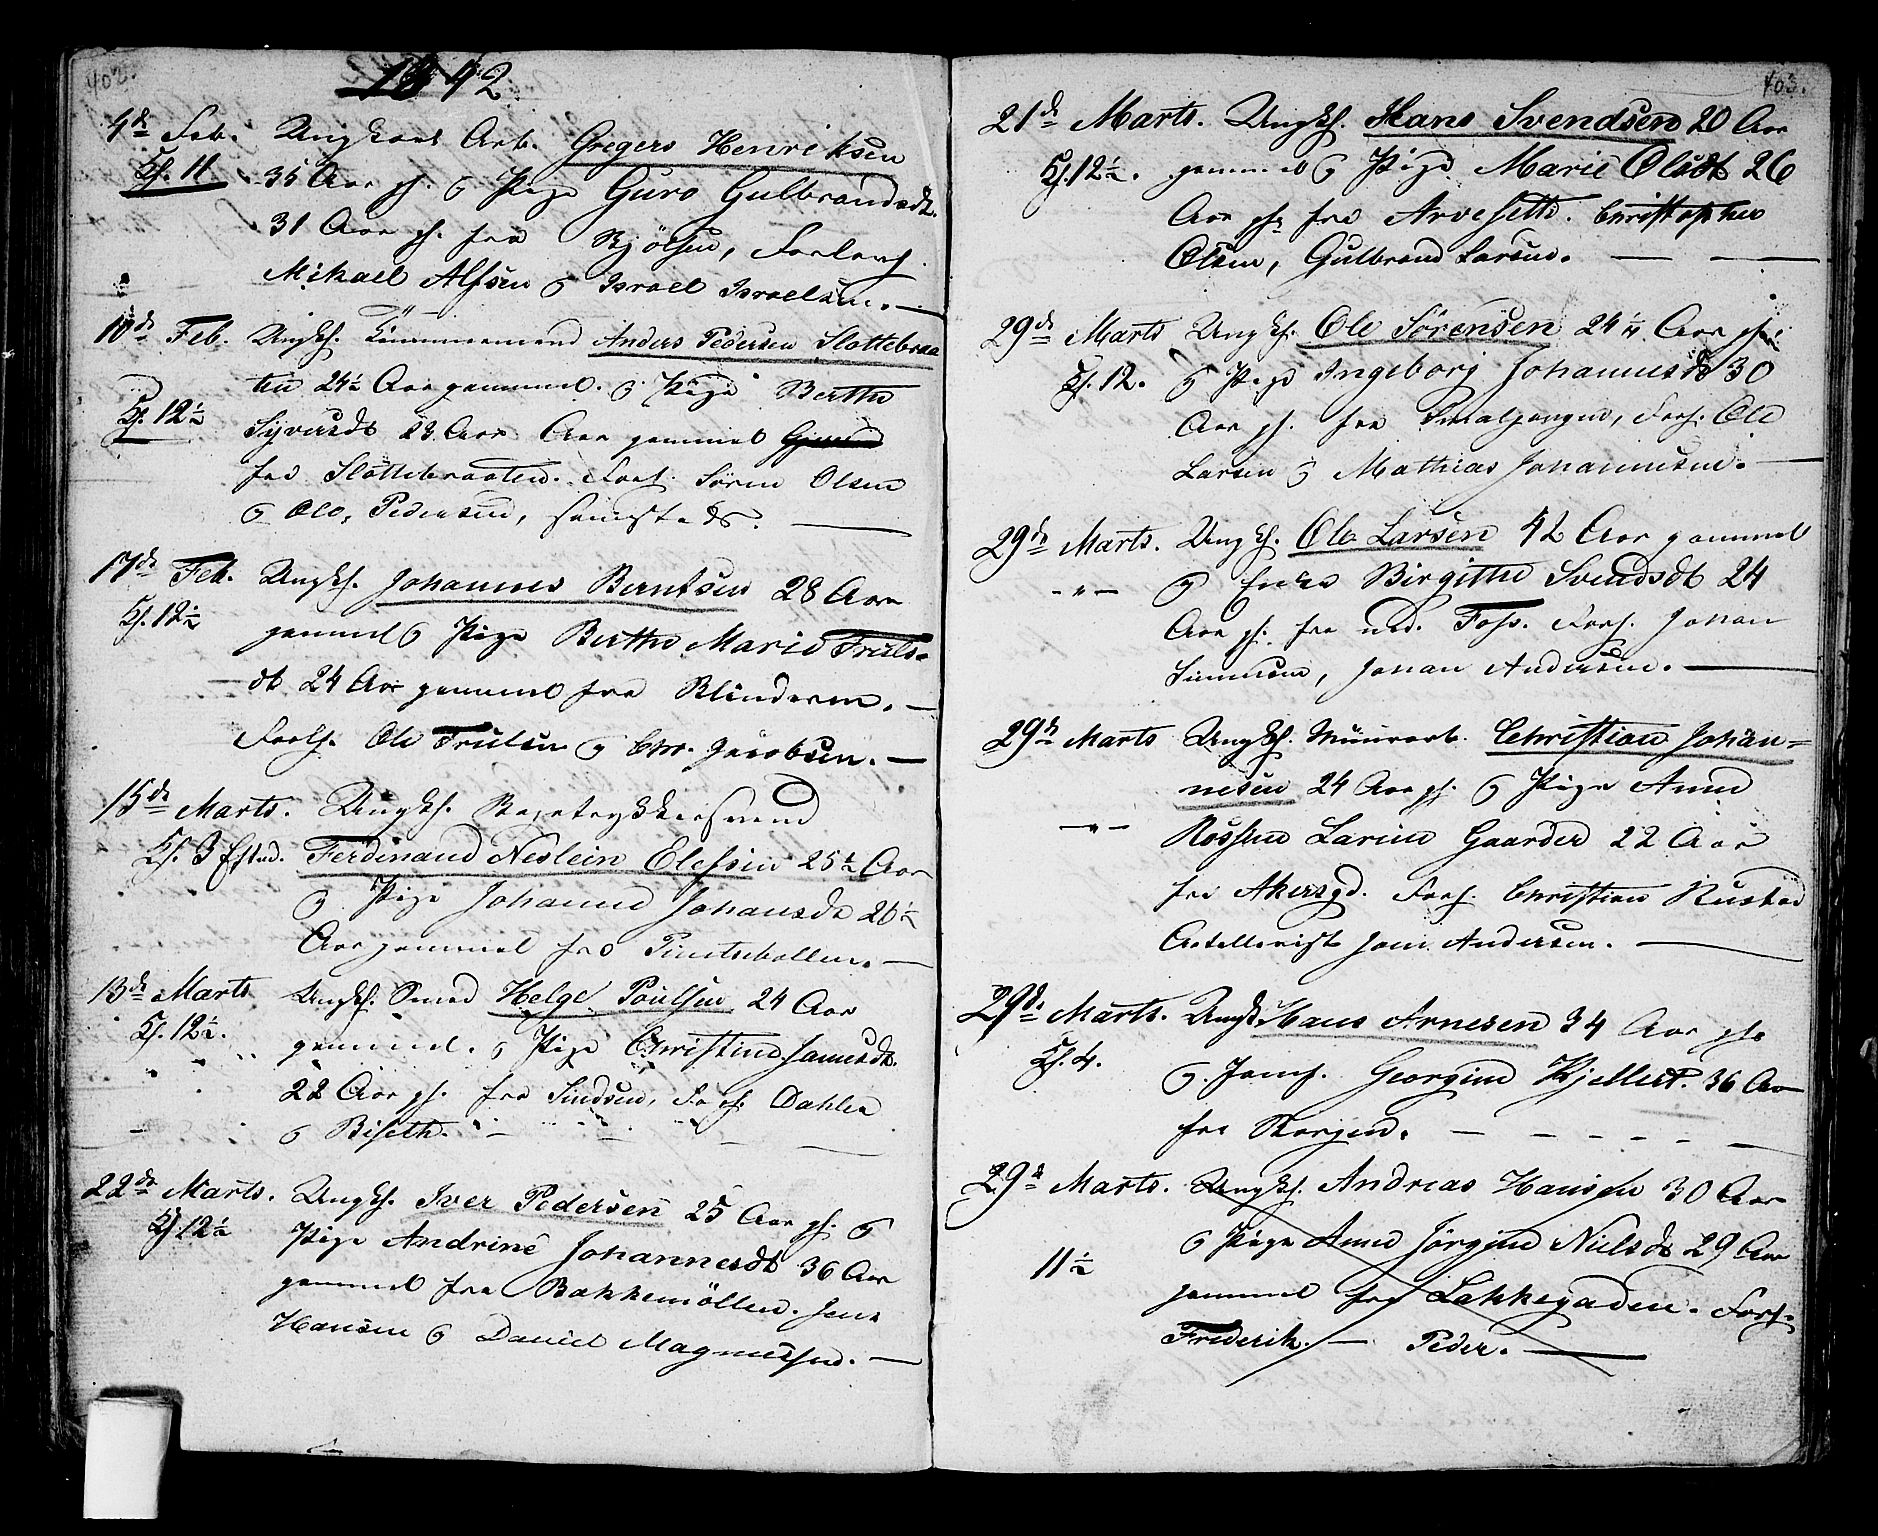 402.
1842
4de Feb. Ungkarl Arb. Gregers Henriksen
Kl. 11 35 Aar gl. og Pige Guro Gulbrandsdt.
31 Aar gl. fra Bjölsen, Forlovs.
Mikael Alfsen og Israel Israelsen. —
10de Feb. Ungk. Tömmermand Anders Pedersen Slottebraa
ten 24½ Aar gammel. og Pige Berthe
Kl. 12½ Syversdt 23 Aar Aar gammel
fra Slottebraaten. Forl. Sören Olsen
og Ole Pedersen, samsteds. —
17de Feb. Ungk. Johannes Berntsen 28 Aar
Kl. 12½ gammel og Pige Berthe Marie Truls-
dt 24 Aar gammel fra Blinderen. —
Forls. Ole Trulsen og Chr. Jacobsen. —
15de Marts. Ungk. Bogtrykkersvend
Kl. 3 Eftmd. Ferdinand Neslein Elefsen 25½ Aar
og Pige Johanne Johansdt 26½
Aar gammel fra Pintsebollen. —
13de Marts Ungk. Smed Helge Poulsen 24 Aar
Kl. 12½. gammel. og Pige Christine Jamesdt.
22 Aar gl. fra Sindsen, Forl. Dahlen
og Biseth. —
22de Marts. Ungk. Iver Pedersen 25 Aar gl. og
Kl. 12½ Pige Andrine Johannesdt 36 Aar
gammel fra Bakkemöllen. Jens
Hansen og Daniel Magnussen. —
403.
21de Marts. Ungk. Hans Svendsen 20 Aar
Kl. 12½. gammel og Pige Marie Olsdt 26
Aar gl. fra Arvesetti. Christopher
Olsen, Gulbrand Larsen. — —
29de Marts Ungk. Ole Sörensen 24¼ Aar gl.
Kl. 12. og Pige Ingeborg Johannesdt 30
Aar gl. fra Smalgangen, Forl. Ole
Larsen og Mathias Johannesen. —
29de Marts. Ungk. Ole Larsen 42 Aar gammel
-"- og Enke Birgitte Svendsdt 24
Aar gl. fra ned. Foss. Forl. Johan
Simensen, Johan Andersen. —
29de Marts Ungk. Muurarb. Christian Johan-
nesen 24 Aar gl. og Pige Anne
-"- Rossine Larine Gaarder 22 Aar
fra Akersgd. Forl. Christian Rustad
Artellerist Jens Andersen. —
29de Marts. Ungk. Hans Arnesen 34 Aar gl.
Kl. 4. og Jomf. Georgine Kjellert. 36 Aar
fra Storgen. — — — — —
29de Marts. Ungk. Andreas Hansen 30 Aar
og Pige Anne Jörgine Nielsdt 29 Aar
11½ gammel fra Lakkegaden. Forl.
Frederik. — Peder. —